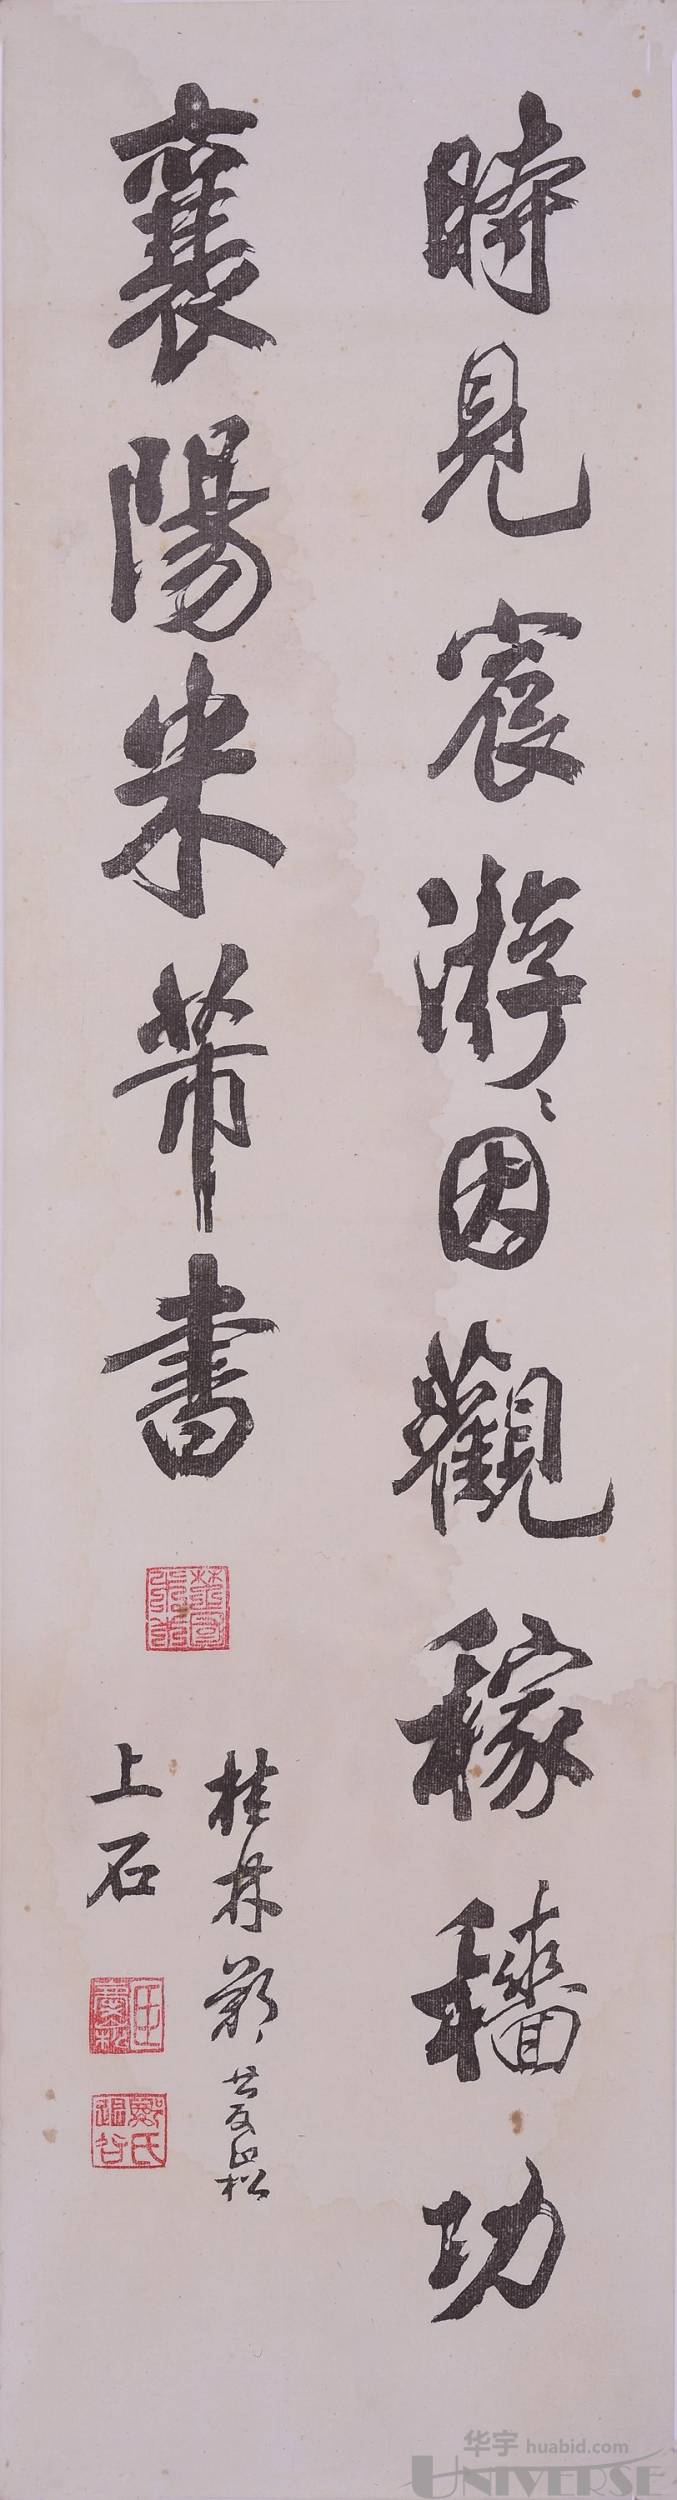 時見宸游游因觀稼穡功
襄陽米芾書
桂林鄭
上石
鄭氏
华宇 huabid.com
UNIVERSE